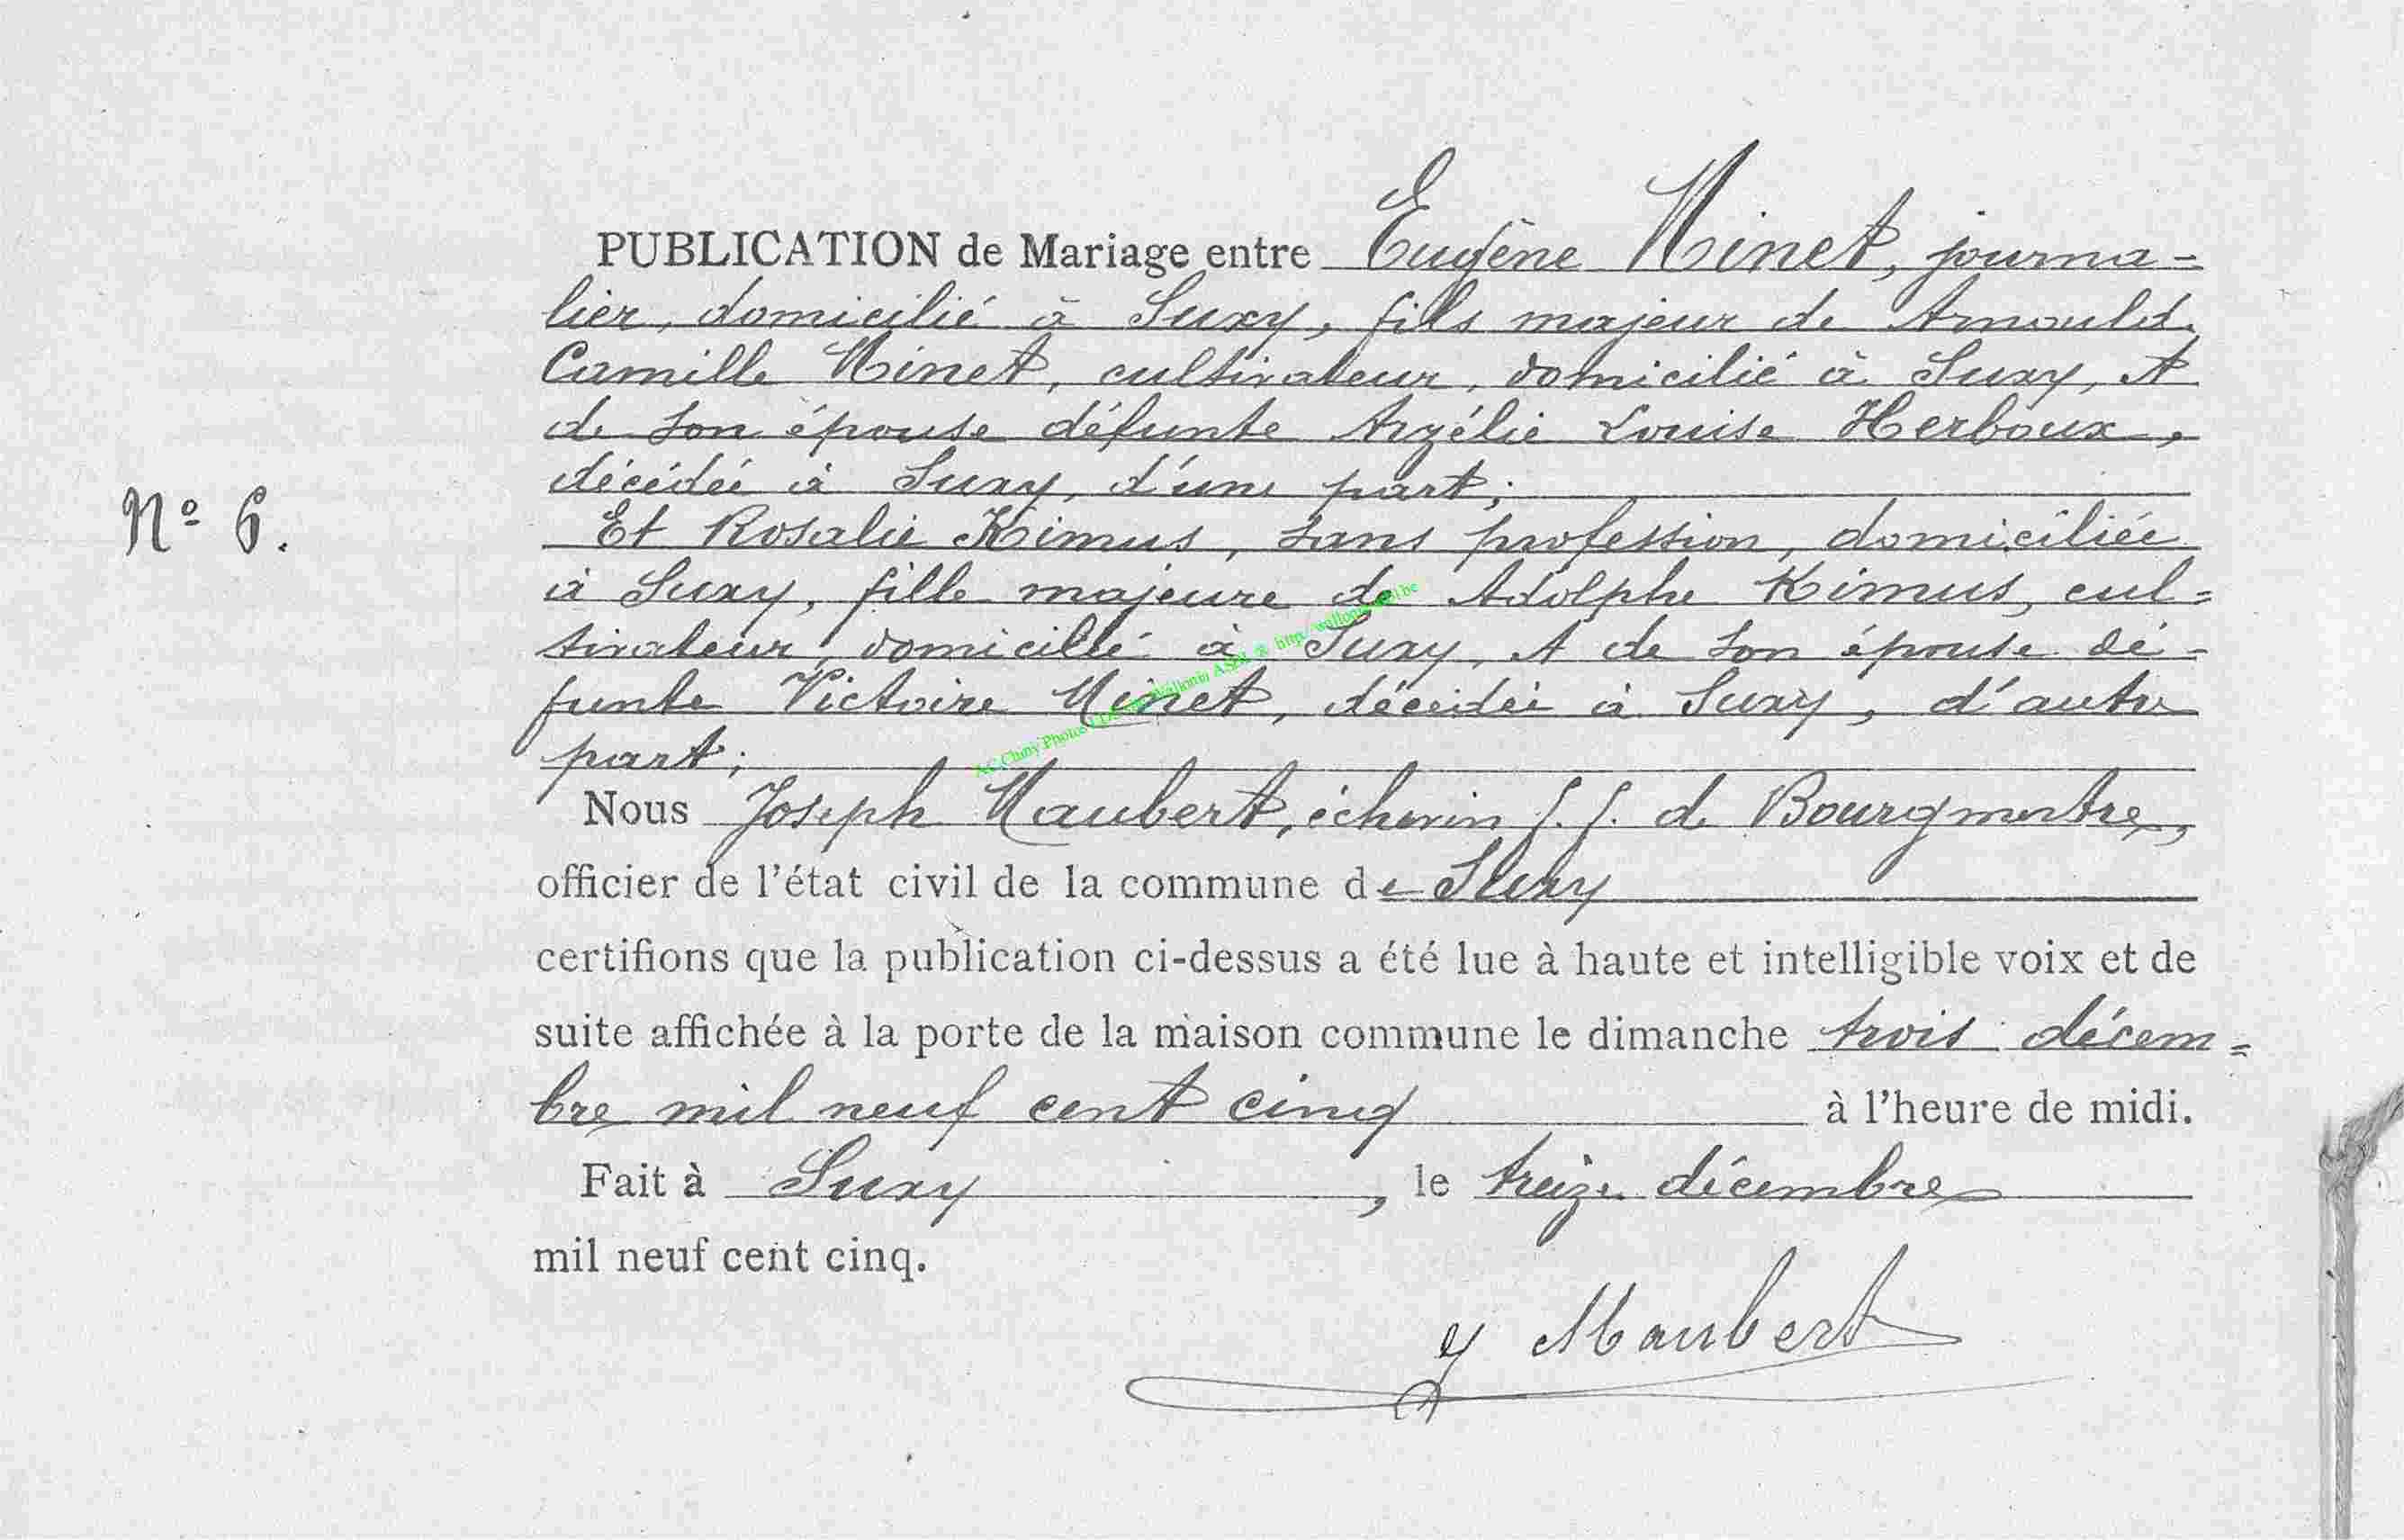 PUBLICATION de Mariage entre Eugène Minet, journa-
lier, domicilié à Suxy, fils majeur de Arnould
Camille Minet, cultivateur, domicilié à Suxy, et
de son épouse défunte Argélie Louise Herboux,
décédée à Suxy, d'une part;
Nº 6.
Et Rosalie Kimus, sans profession, domiciliée
à Suxy, fille majeure de Adolphe Kimus, cul=
tivateur, domicilié à Suxy, et de son épouse dé-
funte Victoire Minet, décédée à Suxy, d'autre
part;
Nous Joseph Maubert, échevin f.f. de Bourgmestre,
officier de l'état civil de la commune de Suxy
certifions que la publication ci-dessus a été lue à haute et intelligible voix et de
suite affichée à la porte de la maison commune le dimanche trois décem=
bre mil neuf cent cinq à l'heure de midi.
Fait à Suxy, le treize décembre
mil neuf cent cinq.
J Maubert